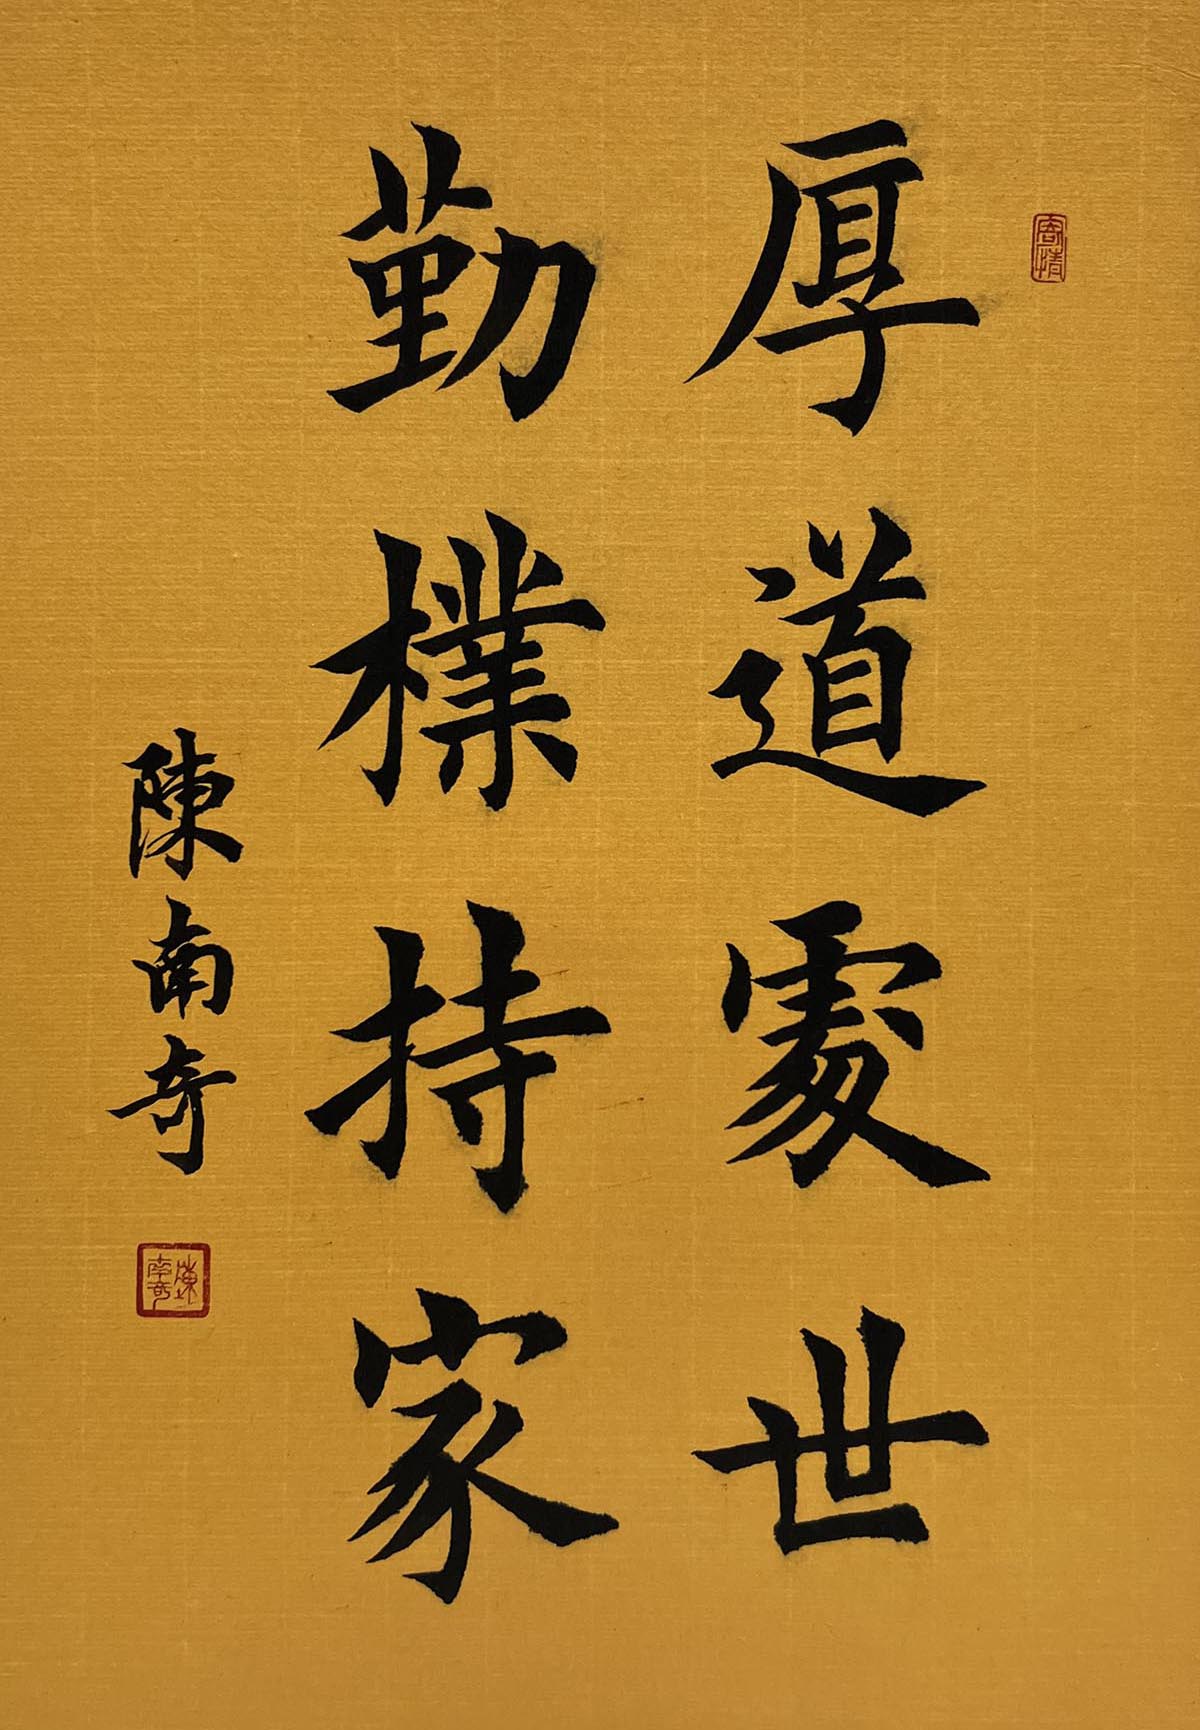 厚道處世
勤樸持家
陳南奇
寄情
陳南奇